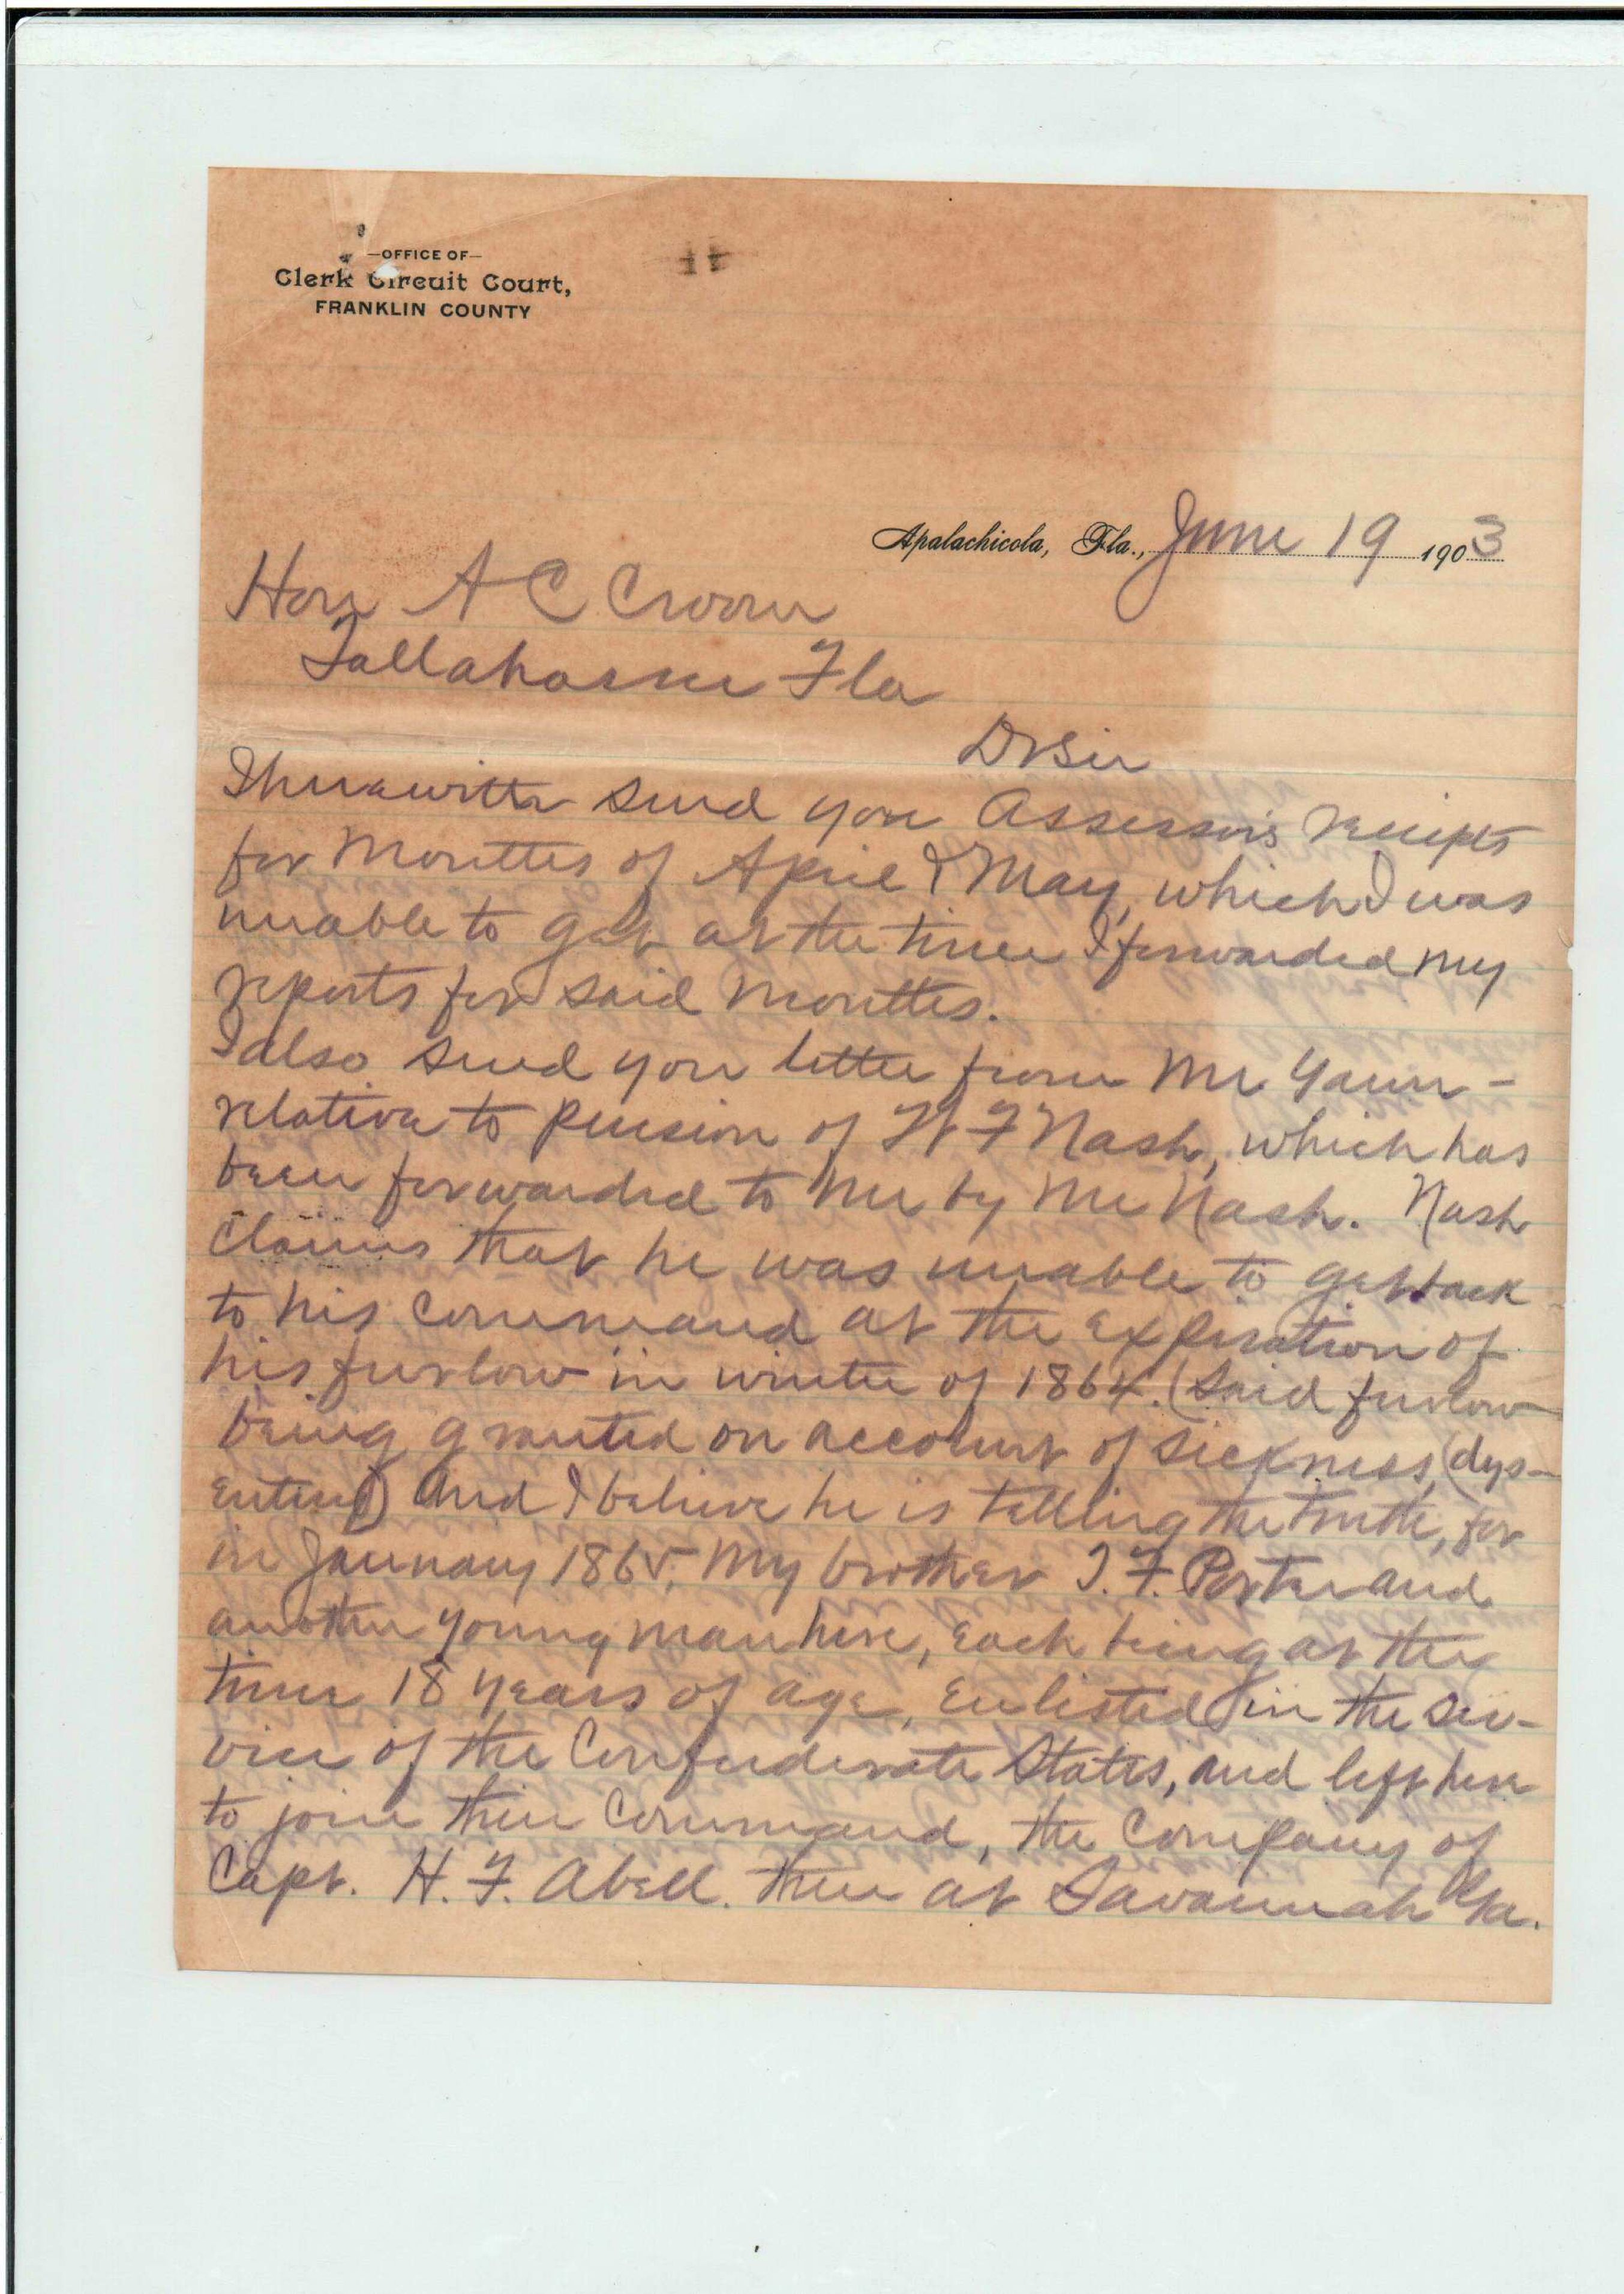 —OFFICE OF—
Clerk Circuit Court,
FRANKLIN COUNTY
Apalachicola, Fla., June 19 1903
Hon A C Croom
Tallahassee Fla
Dr Sir
I herewith send you Assessors receipts
for months of April & May, which I was
unable to get at the time I forwarded my
reports for said months.
I also send you letter from Mr Yawn -
relative to pension of W F Nash, which has
been forwarded to me by Mr Nash. Nash
claims that he was unable to get back
to his command at the expiration of
his furlow in winter of 1864. (Said furlow
being granted on account of sickness, (dys-
entery) And I believe he is telling the truth, for
in January 1865, My brother T. F. Porter and
another young man here, each being at the
time 18 years of age, enlisted in the ser-
vice of the Confederate States, and left here
to join their command, the Company of
Capt. H. F. Abell. then at Savannah Ga.